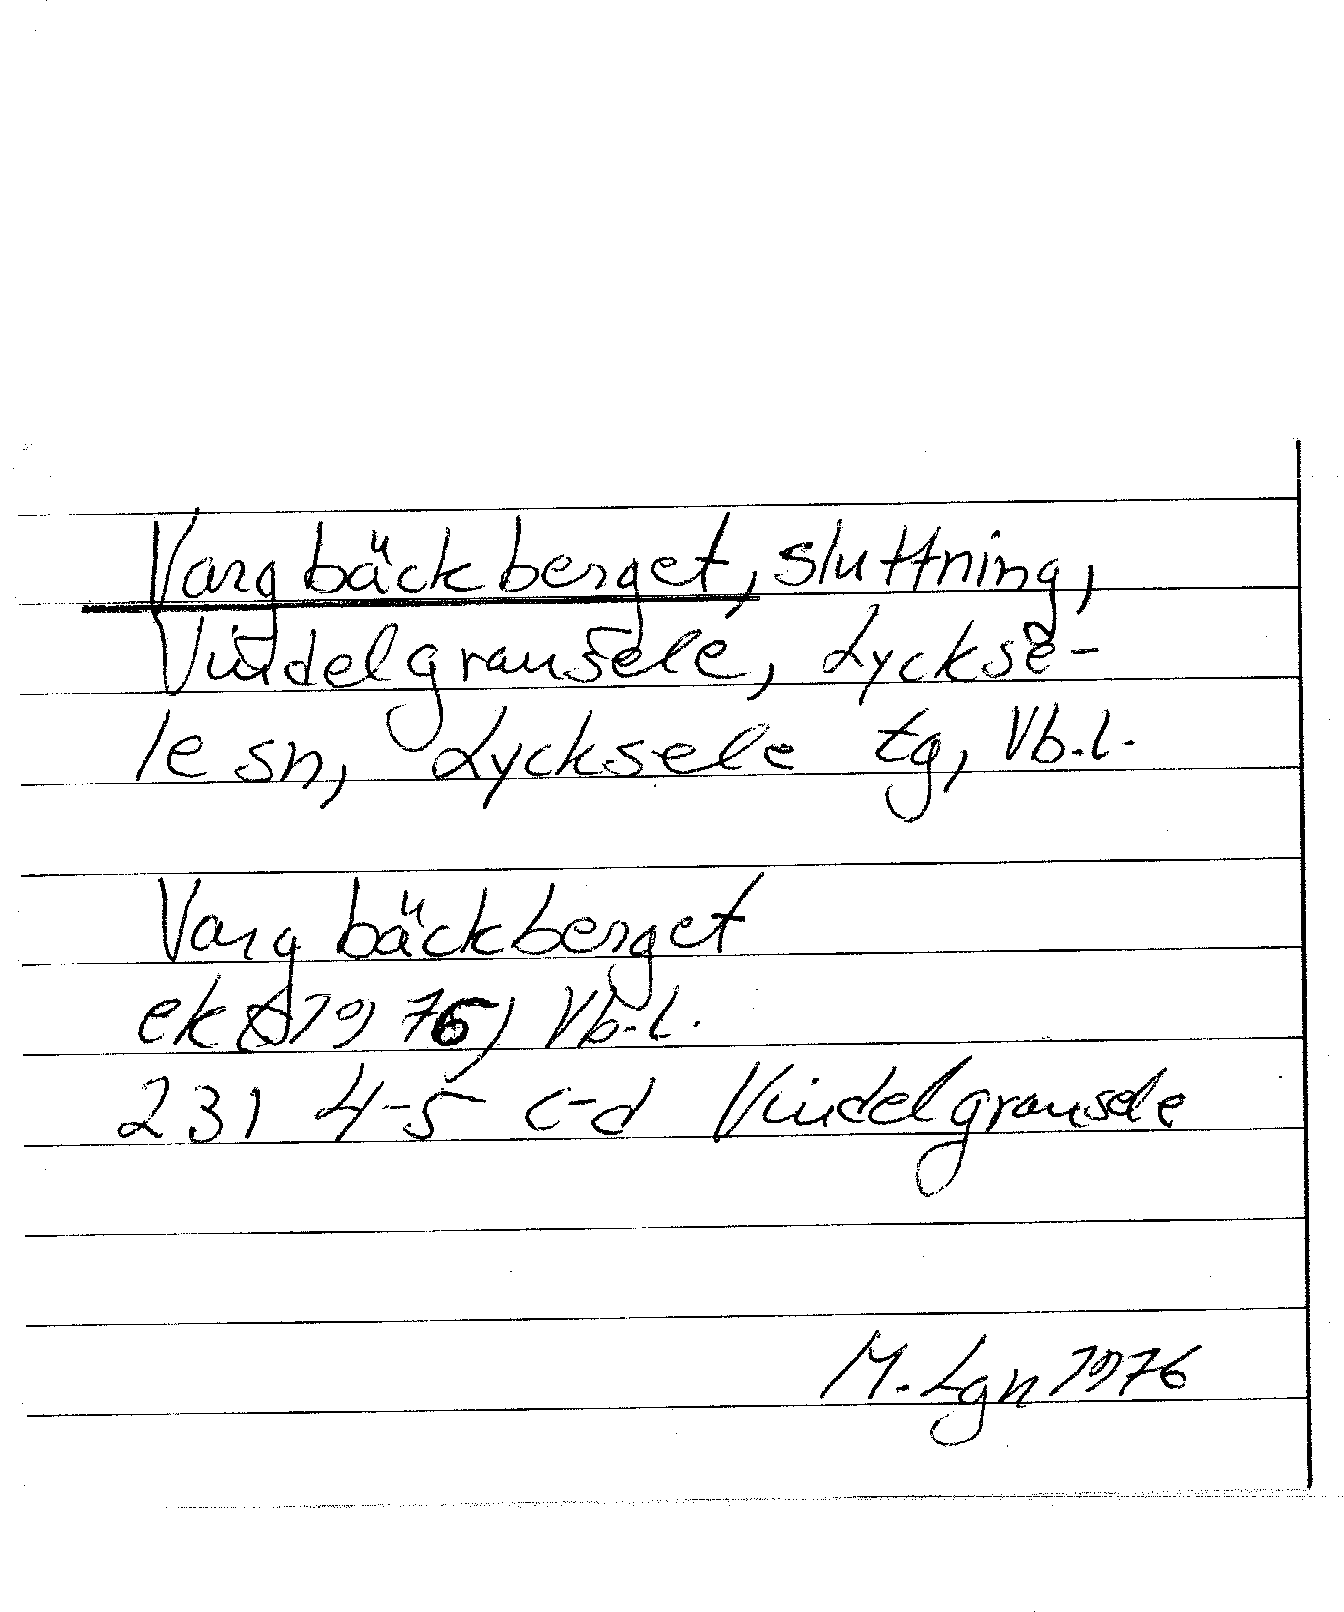 Vargbäckberget, sluttning,
Vindelgransele, Lyckse-
le sn, Lycksele tg, Vb.l.
Vargbäckberget
ek 1976, Vb.l.
231 4-5 c-d Vindelgransele
M. Lgn 1976